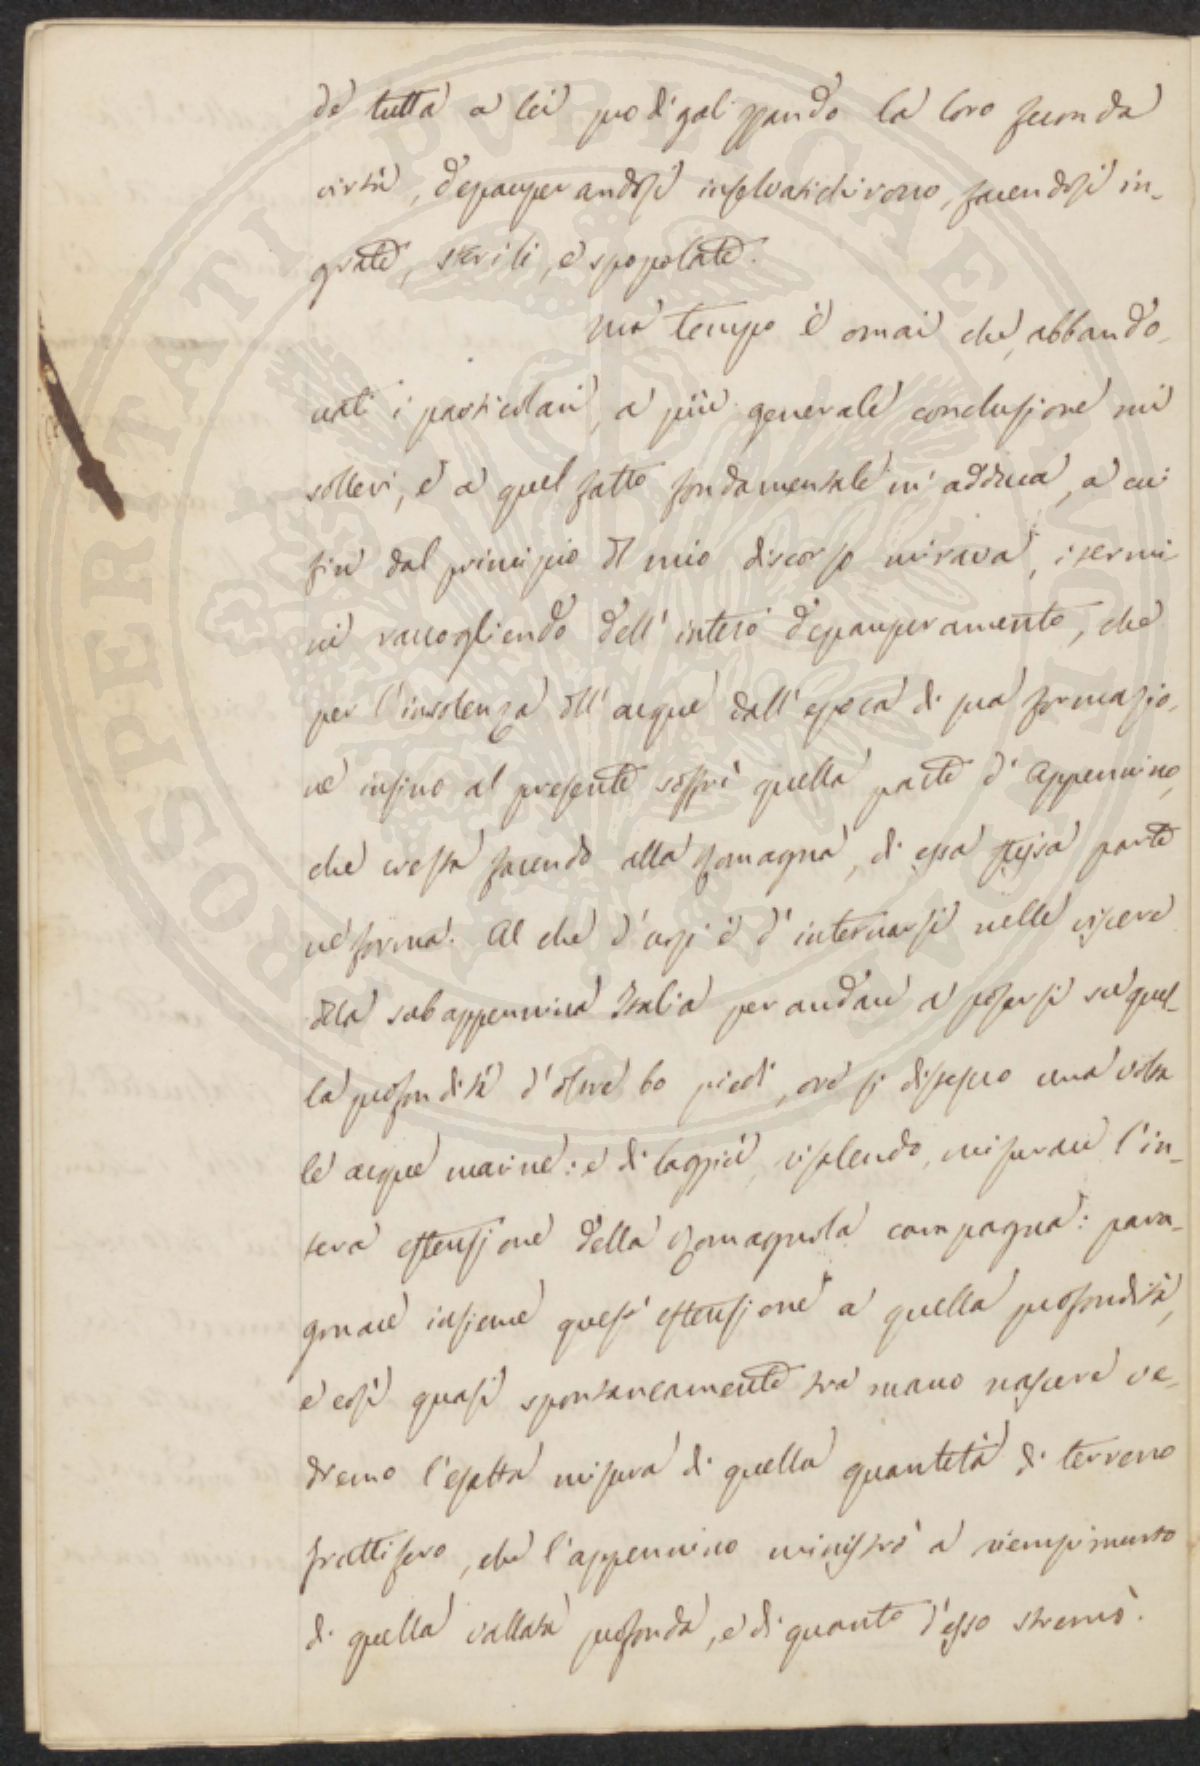 de tutta a lei prodigalizzando la loro feconda
virtù, depauperandosi insalvatichirono, facendosi in-
grate, sterili, e spopolate.
Ma tempo è omai che, abbando-
nati i particolari, a più generale conclusione mi
sollevi, e a quel fatto fondamentale m'adduca, a cui
fin dal principio del mio discorso mirava, i termi
ni raccogliendo dell'intero depauperamento, che
per l'insolenza dell'acque dall'epoca di sua formazio-
ne insino al presente soffrì quella parte d'Appennino,
che cresta facendo alla Romagna, di essa stessa parte
ne forma. Al che d'uopo è d'internarsi nelle viscere
della subappennina Italia per andare a posarsi su quel-
la profondità d'oltre 60 piedi, ove si distesero una volta
le acque marine: e di laggiù, risalendo, misurare l'in-
tera estensione della Romagnola campagna: para-
gonare insieme quest'estensione a quella profondità,
e così quasi spontaneamente tra mano nascere ve-
dremo l'esatta misura di quella quantità di terreno
fruttifero, che l'appennino ministrò a riempimento
di quella vallata profonda, e di quanto d'esso stremò.
PROSPERITATI PVBLICAE